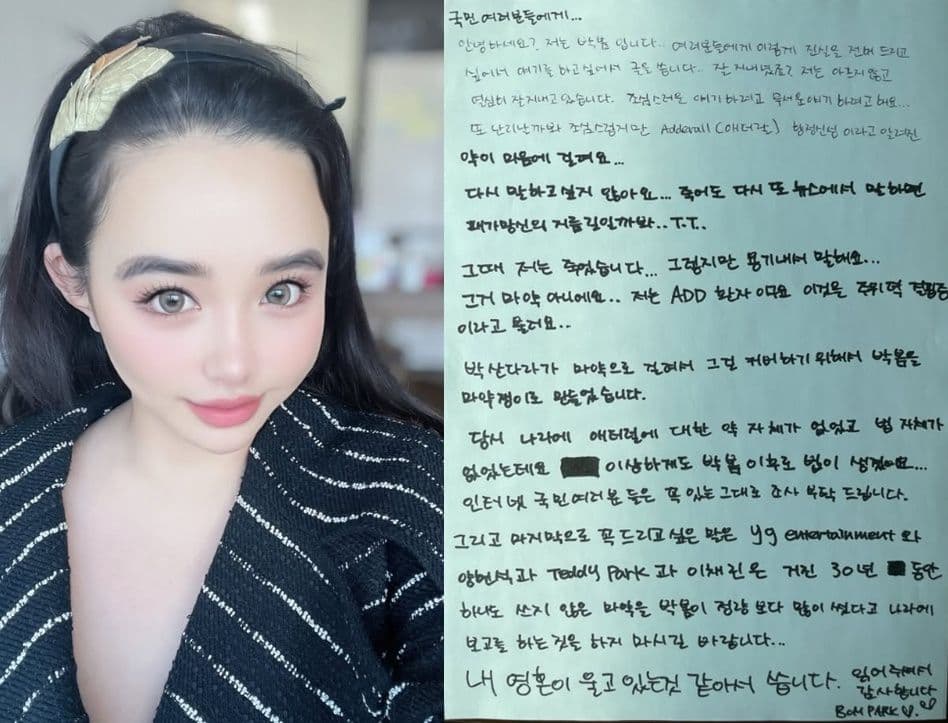 국민 여러분들에게...
안녕하세요? 저는 박봄 입니다.. 여러분들에게 이렇게 진실을 전해 드리고
싶어서 얘기를 하고싶어서 글을 씁니다.. 잘 지내셨죠? 저는 아프지 않고
열심히 잘지내고 있습니다. 조심스러운 얘기하려고 무서운얘기 하려고 해요...
또 난리난까봐 조심스럽지만 Adderall (애더랄) 향정신성 이라고 알려진
약이 마음에 걸려요...
다시 말하고 싶지 않아요... 죽어도 다시 또 뉴스에서 말하면
패가망신의 지름길일까봐..T.T..
그때 저는 죽었습니다... 그렇지만 용기내서 말해요...
그거 마약 아니에요.. 저는 ADD 환자이며요 이것은 주위력 결핍증
이라고 불려요..
박산다라가 마약으로 걸려서 그걸 커버하기 위해서 박봄을
마약쟁이로 만들었습니다.
당시 나라에 애터럴에 대한 약 자체가 없었고 법 자체가
없었는데요 이상하게도 박봄 이후로 법이 생겼어요...
인터넷 국민여러분 들은 꼭 있는그대로 조사 부탁 드립니다.
그리고 마지막으로 꼭드리고 싶은 말은 yg entertainment 와
양현석과 Teddy Park 과 이채린은 거진 30년 동안
하나도 쓰지 않은 마약을 박봄이 정량 보다 많이 썼다고 나라에
보고를 하는것을 하지 마시길 바랍니다...
내 영혼이 울고 있는것 같아서 씁니다. 읽어주셔서
감사합니다
BOM PARK ♡.♡